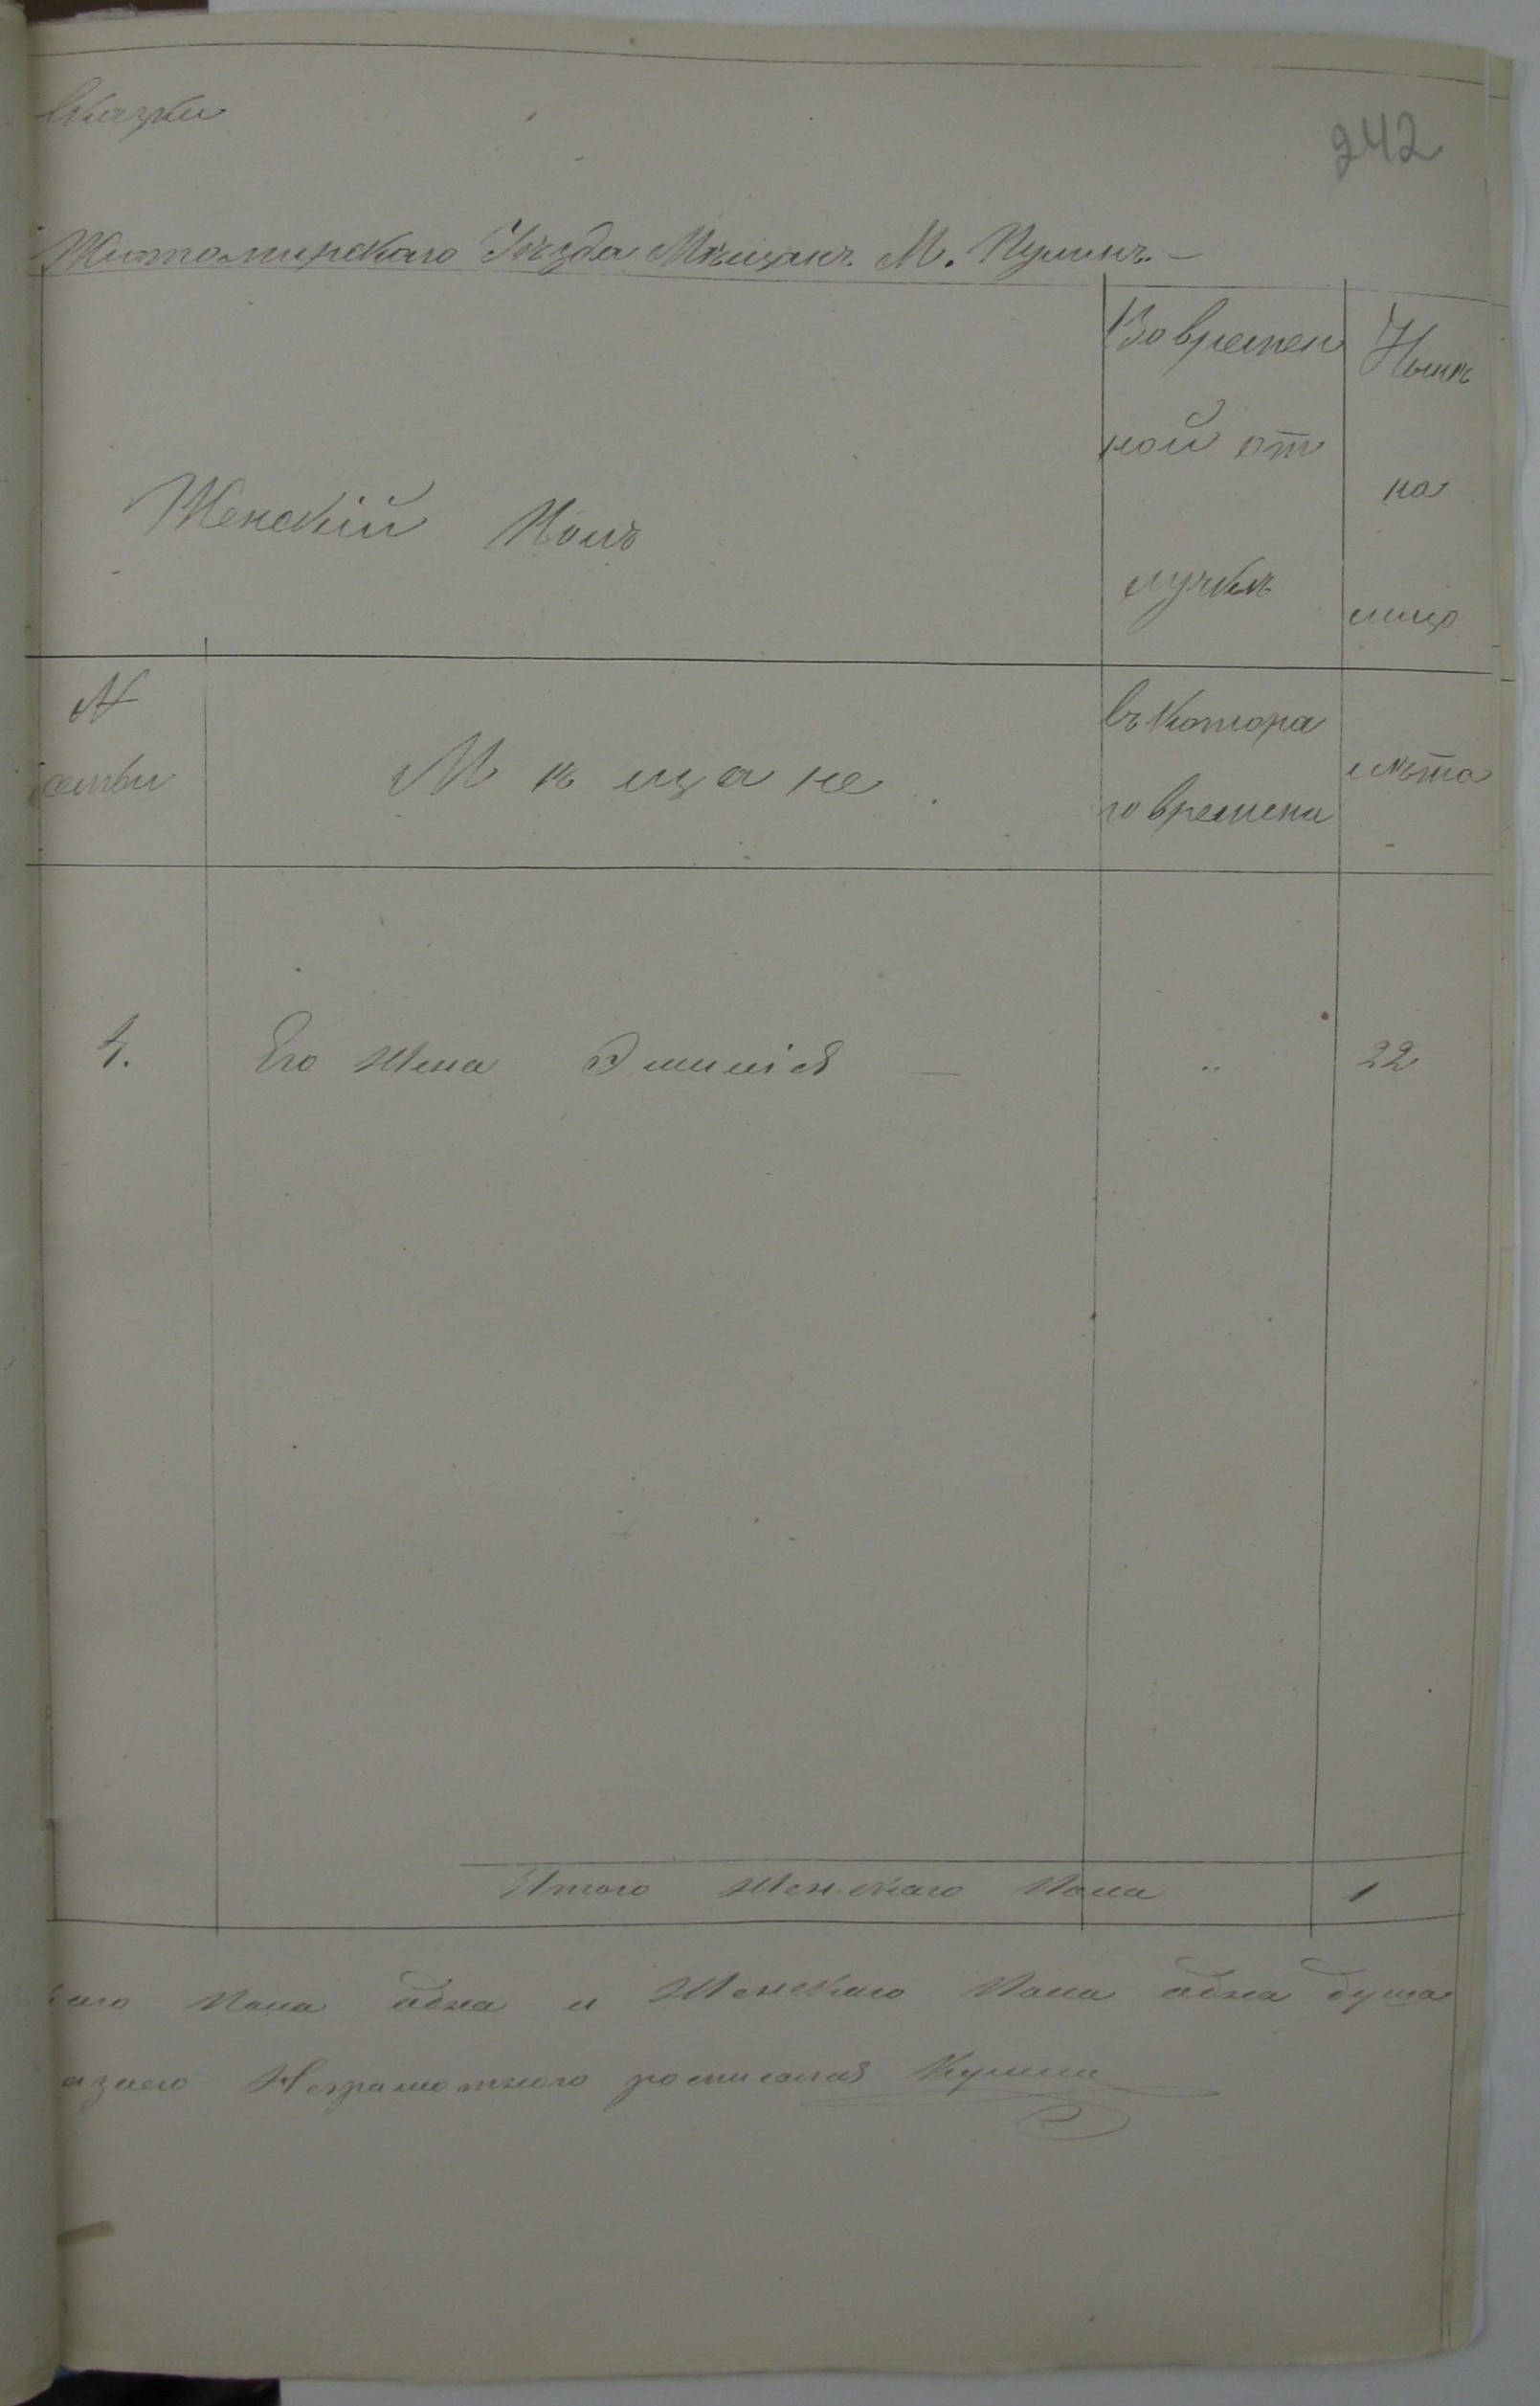 Сказки
242
Житомирскаго Уѣзда Мѣщанъ М. Пулинъ. —
Женскій Полъ
Во времен
ной от
лучкѣ
Нынѣ
на
лицо
№
семьи
Мѣщане.
Съ котора
го времени
лѣта
4. Его Жена Эмилія — " 22
Итого Женскаго Пола 1
каго Пола одна и Женскаго Пола одна душа
Неграмотнаго росписался